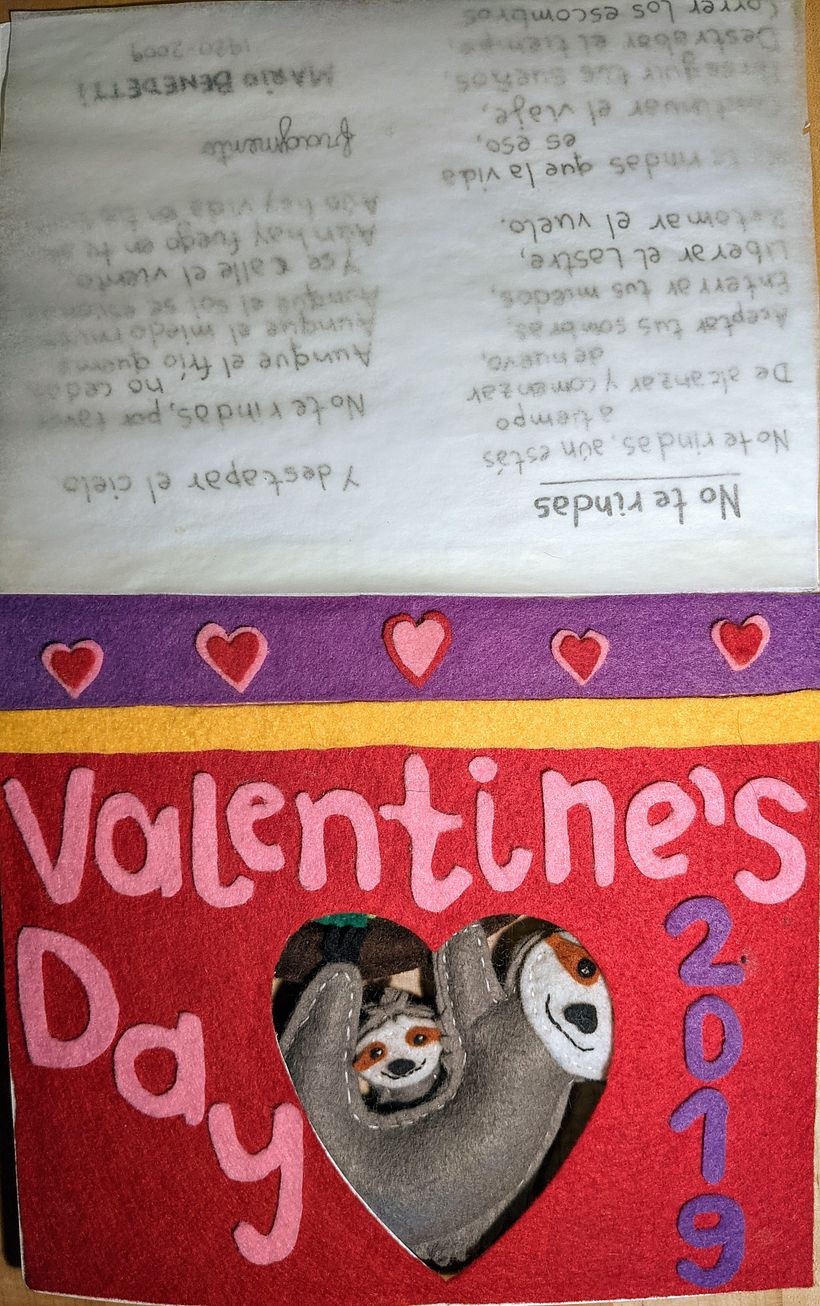 No te rindas
No te rindas, aún estás
a tiempo
De alcanzar y comenzar
de nuevo,
Aceptar tus sombras,
Enterrar tus miedos,
Liberar el Lastre,
Retomar el vuelo.
No te rindas que la vida
es eso,
Continuar el viaje,
Perseguir tus sueños,
Destrabar el tiempo,
Correr los escombros
Y destapar el cielo
No te rindas, por favor
no cedas
Aunque el frío queme
Aunque el miedo
Aunque el sol se
Y se calle el viento
Aún hay fuego en tu
Aún hay vida en tus
fragmento
MARIO BENEDETTI
1920-2009
Valentine's
Day
2019